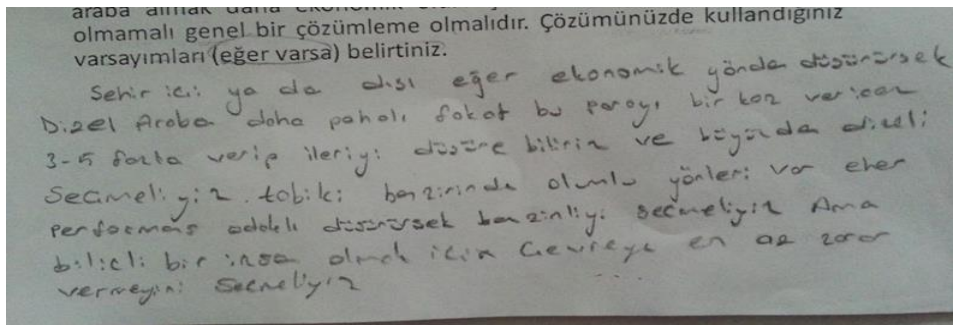 araba almak daha ekonomik
olmamalı genel bir çözümleme olmalıdır. Çözümünüzde kullandığınız
varsayımları (eğer varsa) belirtiniz.
Şehir içi ya da dışı eğer ekonomik yönden düşünürsek
Dizel Araba daha pahalı fakat bu parayı bir kez vericez
3-5 fazla verip ileriyi düşüne biliriz ve büyüzda dizeli
Seçmeliyiz. tabiki benzininde olumlu yönleri var eher
performans odaklı düşünürsek benzinliyi seçmeliyiz Ama
bilicli bir insa olmak için Çevreye en az zarar
vermeyini Seçmeliyiz